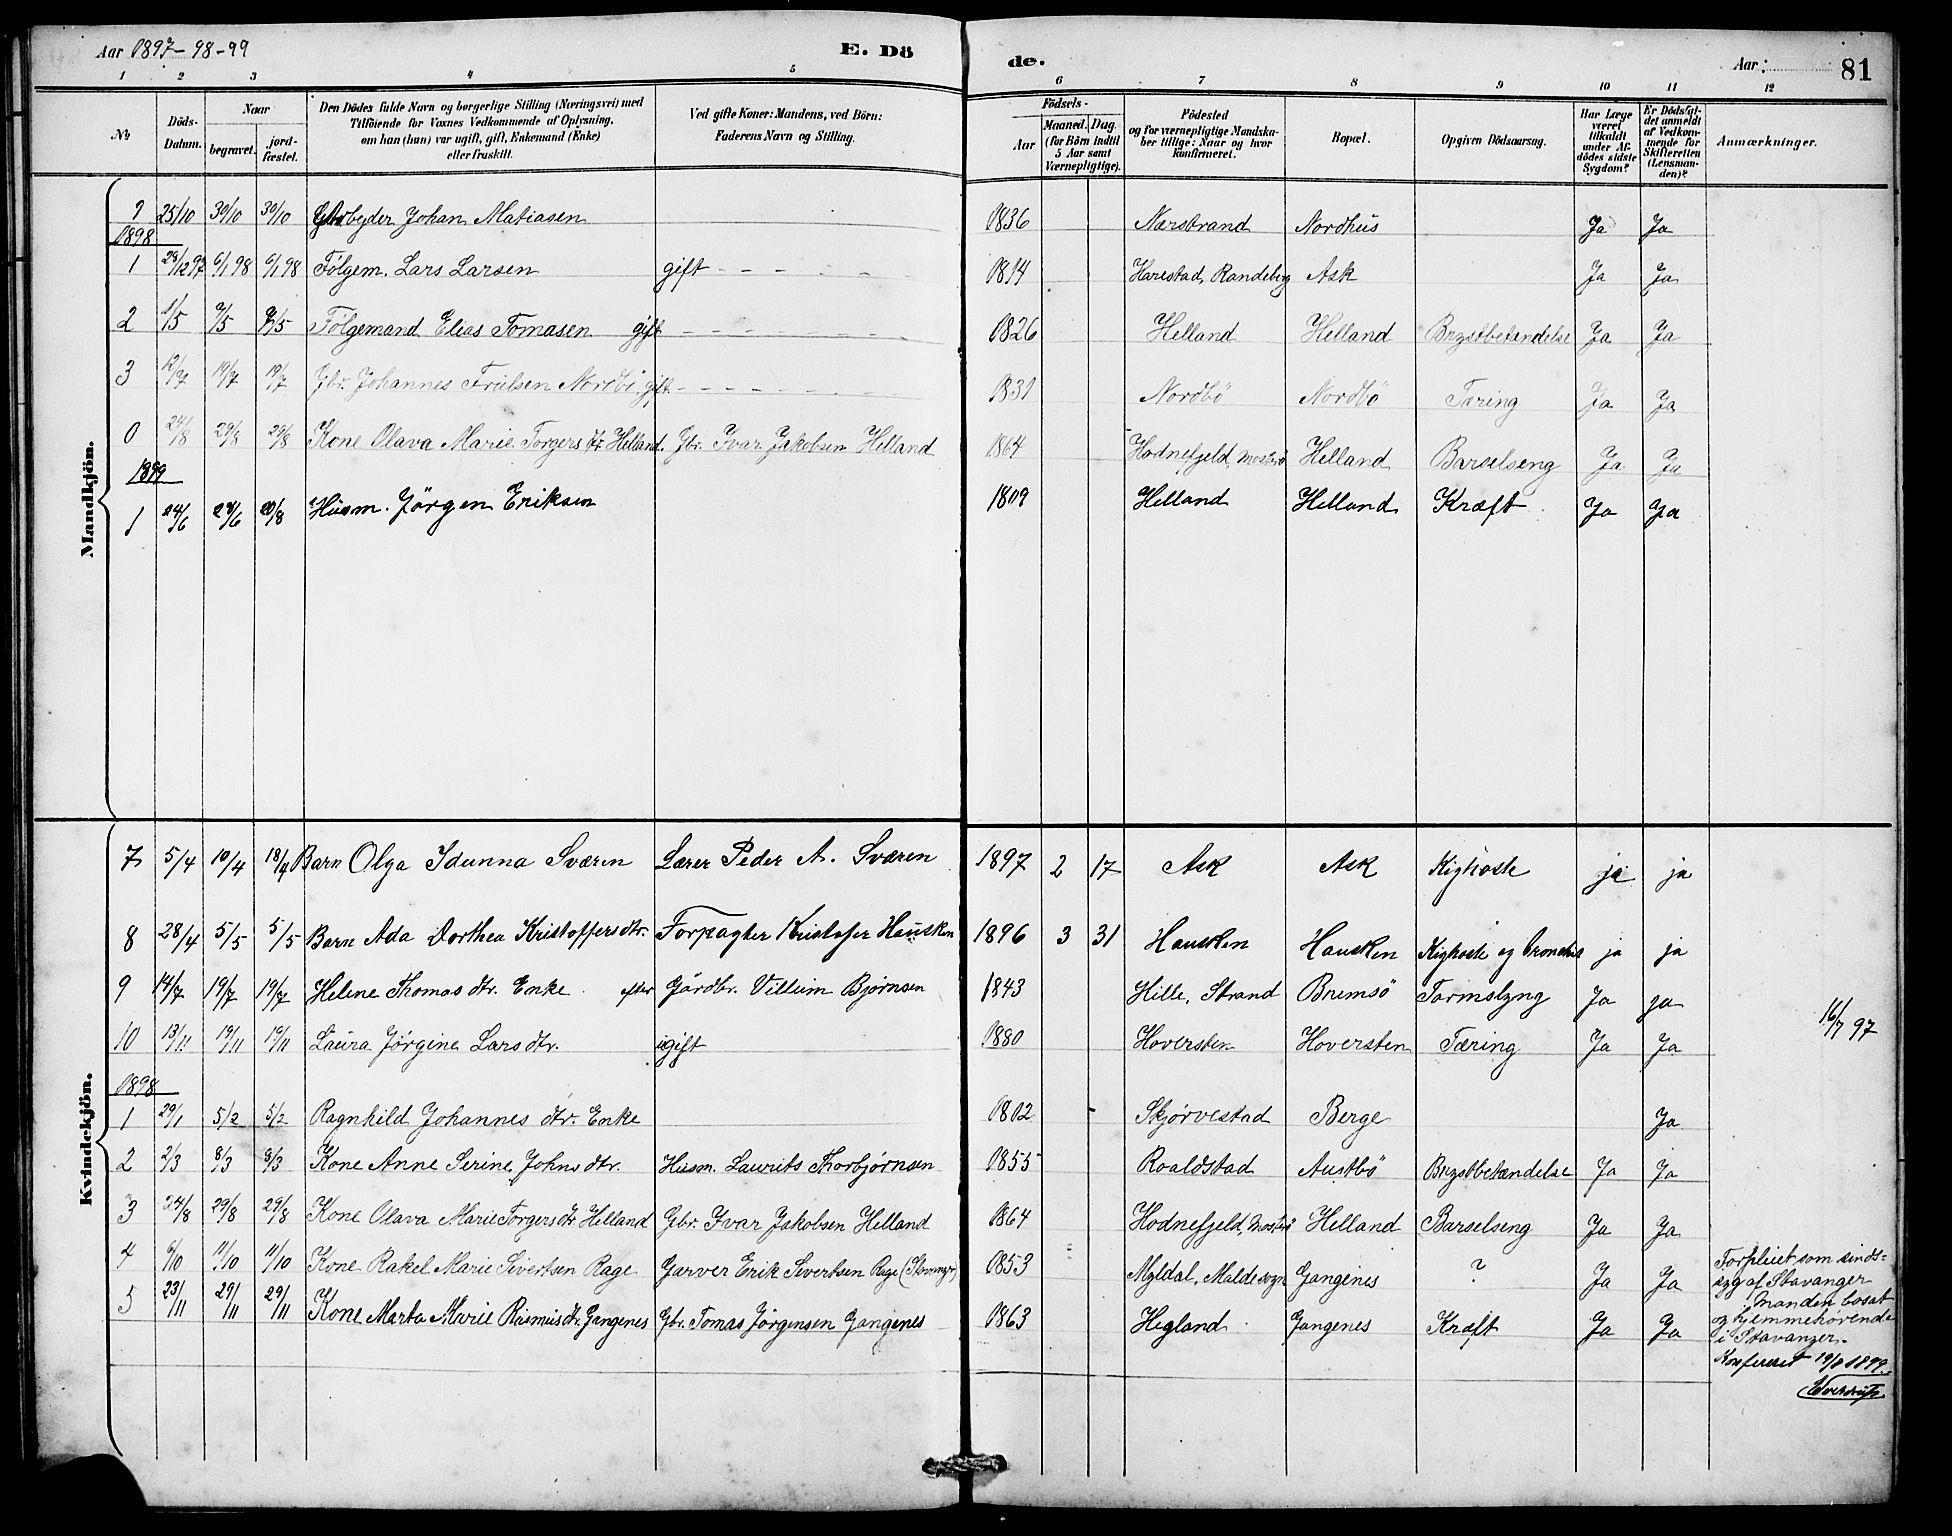 Aar 1897-98-99 E. Dö de. Aar: 81
1 2 3 4 5 6 7 8 9 10 11 12
No Döds-Datum. Naar begravet. jordfæstet. Den Dödes fulde Navn og borgerlige Stilling (Næringsvei) med Tilföiende for Voxnes Vedkommende af Oplysning, om han (hun) var ugift, gift, Enkemand (Enke) eller fraskilt. Ved gifte Koner: Mandens, ved Börn: Faderens Navn og Stilling. Födsels- Aar Maaned. Dag. (for Börn indtil 5 Aar samt Værnepligtige). Födested og for værnepligtige Mandskaber tillige: Naar og hvor Konfirmeret. Bopæl. Opgiven Dödsaarsag. Har Læge været tilkaldt under Afdödes sidste Sygdom? Er Dödsfaldet anmeldt af Vedkommende for Skifteretten (Lensmanden)? Anmærkninger.
Mandkjön.
9 25/10 30/10 30/10 Johan Matiasen 1836 Nærstrand Nordhus Ja Ja
1898
1 29/12 97 6/1 98 6/1 98 Fölgem. Lars Larsen gift - - - - - 1814 Harestad, Randeberg Ask Ja Ja
2 1/5 9/5 9/5 Fölgemand Elias Tomasen gift - - - - - 1826 Helland Helland Brystbetændelse Ja Ja
3 12/7 19/7 19/7 Gbr. Johannes Nordbö. gift - - - - - 1831 Nordbö Nordbö Tæring Ja Ja
0 24/8 29/8 29/8 Kone Olava Marie Torgers dtr Helland. Gbr. Ivar Jakobsen Helland 1864 Hodnefjeld, Mosterö Helland Barselseng Ja Ja
1899
1 24/6 29/6 20/8 Husm. Jörgen Eriksen 1809 Helland Helland Kræft Ja Ja
Kvindekjön.
7 5/4 10/4 18/4 Barn Olga Idunna Sværen Lærer Peder A. Sværen 1897 2 17 Ask Ask Kighoste ja ja
8 28/4 5/5 5/5 Barn Ada Dorthea Kristoffersdtr. Forpagter Kristofer Hausken 1896 3 31 Hausken Hausken Kighoste og ja ja
9 14/7 19/7 19/7 Helene Thomas dtr. Enke efter Gårdbr. Villum Bjørnsen 1843 Hille, Strand Bremsö Tarmslyng Ja ja 16/7 97
10 13/11 19/11 19/11 Laura Jørgine Lars dtr. ugift 1880 Hoversten Hoversten Tæring Ja Ja
1898
1 29/1 5/2 5/2 Ragnhild Johannes dtr. Enke 1802 - Skjørvestad Berge Ja
2 2/3 8/3 8/3 Kone Anne Serine Johns dtr. Husm. Laurits Thorbjørnsen 1855 Roaldstad Austbö Brystbetændelse Ja Ja
3 24/8 29/8 29/8 Kone Olava Marie Torgers dtr Helland Gbr. Ivar Jakobsen Helland 1864 Hodnefjeld, Mosterö Helland Barselseng Ja Ja
4 6/10 11/10 11/10 Kone Rakel Marie Sivertsen Rage Garver Erik Sivertsen Rage 1853 Myldal, Malde sogn Gangenes ? Ja Ja Forpleiet som sinds-
syg af Stavanger
Manden bosat
og hjemmehörende
i Stavanger.
5 23/11 29/11 29/11 Kone Marta Marie Rasmus dtr. Gangenes Gbr. Tomas Jørgensen Gangenes 1863 Hegland Gangenes Kræft Ja Ja
Konfereret 19/8 1899.